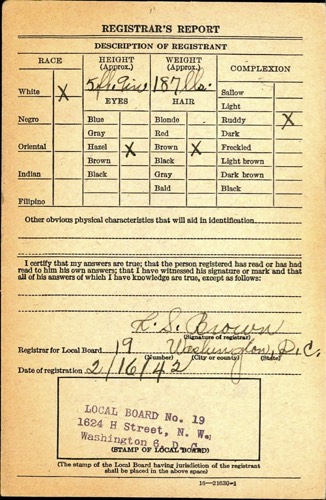 REGISTRAR'S REPORT
DESCRIPTION OF REGISTRANT
RACE
HEIGHT (Approx.)
WEIGHT (Approx.)
COMPLEXION
White X
5 ft 9 in
187 lbs.
Sallow
EYES
HAIR
Light
Negro
Blue
Blonde
Ruddy X
Gray
Red
Dark
Oriental
Hazel X
Brown X
Freckled
Brown
Black
Light brown
Indian
Black
Gray
Dark brown
Bald
Black
Filipino
Other obvious physical characteristics that will aid in identification
I certify that my answers are true; that the person registered has read or has had
read to him his own answers; that I have witnessed his signature or mark and that
all of his answers of which I have knowledge are true, except as follows:
S. Brown
(Signature of registrar)
Registrar for Local Board 19 Washington, D.C.
(Number) (City or county) (State)
Date of registration 2/16/42
LOCAL BOARD No. 19
1624 H Street, N. W.
Washington 6, D. C.
(STAMP OF LOCAL BOARD)
(The stamp of the Local Board having jurisdiction of the registrant
shall be placed in the above space)
16—21630-1